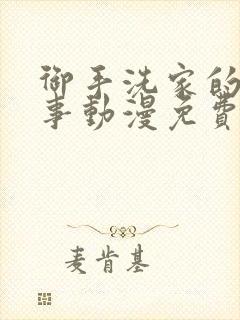 御手洗家的
事動漫免費
麦肯基